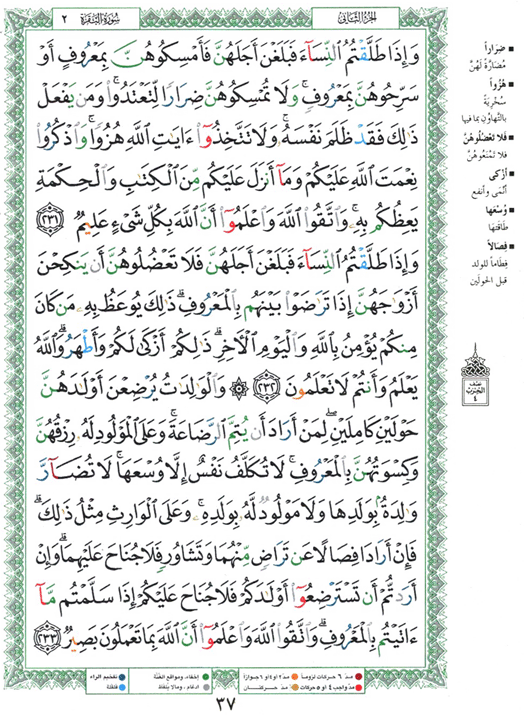 سُورَةُ البَقَرَة ٢
الجُزءُ الثَّانِي
وَإِذَا طَلَّقْتُمُ ٱلنِّسَآءَ فَبَلَغْنَ أَجَلَهُنَّ فَأَمْسِكُوهُنَّ بِمَعْرُوفٍ أَوْ
سَرِّحُوهُنَّ بِمَعْرُوفٍ ۚ وَلَا تُمْسِكُوهُنَّ ضِرَارًا لِّتَعْتَدُوا۟ ۚ وَمَن يَفْعَلْ
ذَٰلِكَ فَقَدْ ظَلَمَ نَفْسَهُۥ ۚ وَلَا تَتَّخِذُوٓا۟ ءَايَٰتِ ٱللَّهِ هُزُوًا ۚ وَٱذْكُرُوا۟
نِعْمَتَ ٱللَّهِ عَلَيْكُمْ وَمَآ أَنزَلَ عَلَيْكُم مِّنَ ٱلْكِتَٰبِ وَٱلْحِكْمَةِ
يَعِظُكُم بِهِۦ ۚ وَٱتَّقُوا۟ ٱللَّهَ وَٱعْلَمُوٓا۟ أَنَّ ٱللَّهَ بِكُلِّ شَىْءٍ عَلِيمٌ ٢٣١
وَإِذَا طَلَّقْتُمُ ٱلنِّسَآءَ فَبَلَغْنَ أَجَلَهُنَّ فَلَا تَعْضُلُوهُنَّ أَن يَنكِحْنَ
أَزْوَٰجَهُنَّ إِذَا تَرَٰضَوْا۟ بَيْنَهُم بِٱلْمَعْرُوفِ ۗ ذَٰلِكَ يُوعَظُ بِهِۦ مَن كَانَ
مِنكُمْ يُؤْمِنُ بِٱللَّهِ وَٱلْيَوْمِ ٱلْءَاخِرِ ۗ ذَٰلِكُمْ أَزْكَىٰ لَكُمْ وَأَطْهَرُ ۗ وَٱللَّهُ
يَعْلَمُ وَأَنتُمْ لَا تَعْلَمُونَ ٢٣٢ ۞ وَٱلْوَٰلِدَٰتُ يُرْضِعْنَ أَوْلَٰدَهُنَّ
حَوْلَيْنِ كَامِلَيْنِ ۖ لِمَنْ أَرَادَ أَن يُتِمَّ ٱلرَّضَاعَةَ ۚ وَعَلَى ٱلْمَوْلُودِ لَهُۥ رِزْقُهُنَّ
وَكِسْوَتُهُنَّ بِٱلْمَعْرُوفِ ۚ لَا تُكَلَّفُ نَفْسٌ إِلَّا وُسْعَهَا ۚ لَا تُضَآرَّ
وَٰلِدَةٌۢ بِوَلَدِهَا وَلَا مَوْلُودٌ لَّهُۥ بِوَلَدِهِۦ ۚ وَعَلَى ٱلْوَارِثِ مِثْلُ ذَٰلِكَ ۗ
فَإِنْ أَرَادَا فِصَالًا عَن تَرَاضٍ مِّنْهُمَا وَتَشَاوُرٍ فَلَا جُنَاحَ عَلَيْهِمَا ۗ وَإِنْ
أَرَدتُّمْ أَن تَسْتَرْضِعُوٓا۟ أَوْلَٰدَكُمْ فَلَا جُنَاحَ عَلَيْكُمْ إِذَا سَلَّمْتُم مَّآ
ءَاتَيْتُم بِٱلْمَعْرُوفِ ۗ وَٱتَّقُوا۟ ٱللَّهَ وَٱعْلَمُوٓا۟ أَنَّ ٱللَّهَ بِمَا تَعْمَلُونَ بَصِيرٌ ٢٣٣
■ ضِرَاراً
مُضَارَّةً لَهُنَّ
■ هُزُواً
سُخْرِيَةً
بالتَّهَاوُنِ بما فيها
■ فَلا تَعْضُلُوهُنَّ
فلا تَمْنَعُوهُنَّ
■ أَزْكَى
أَنْمَى وأنفع
■ وُسْعَهَا
طَاقَتَهَا
■ فِصَالاً
فِطَاماً للولد
قبل الحولَين
نصف
الحزب
٤
مدّ ٦ حركات لزوماً
مدّ ٢ أو ٤ أو ٦ جوازاً
إخفاء، ومواقع الغُنَّة
تفخيم الراء
مدّ واجب ٤ أو ٥ حركات
مدّ حركتان
ادغام، ومالا يُلفَظ
قلقلة
٣٧